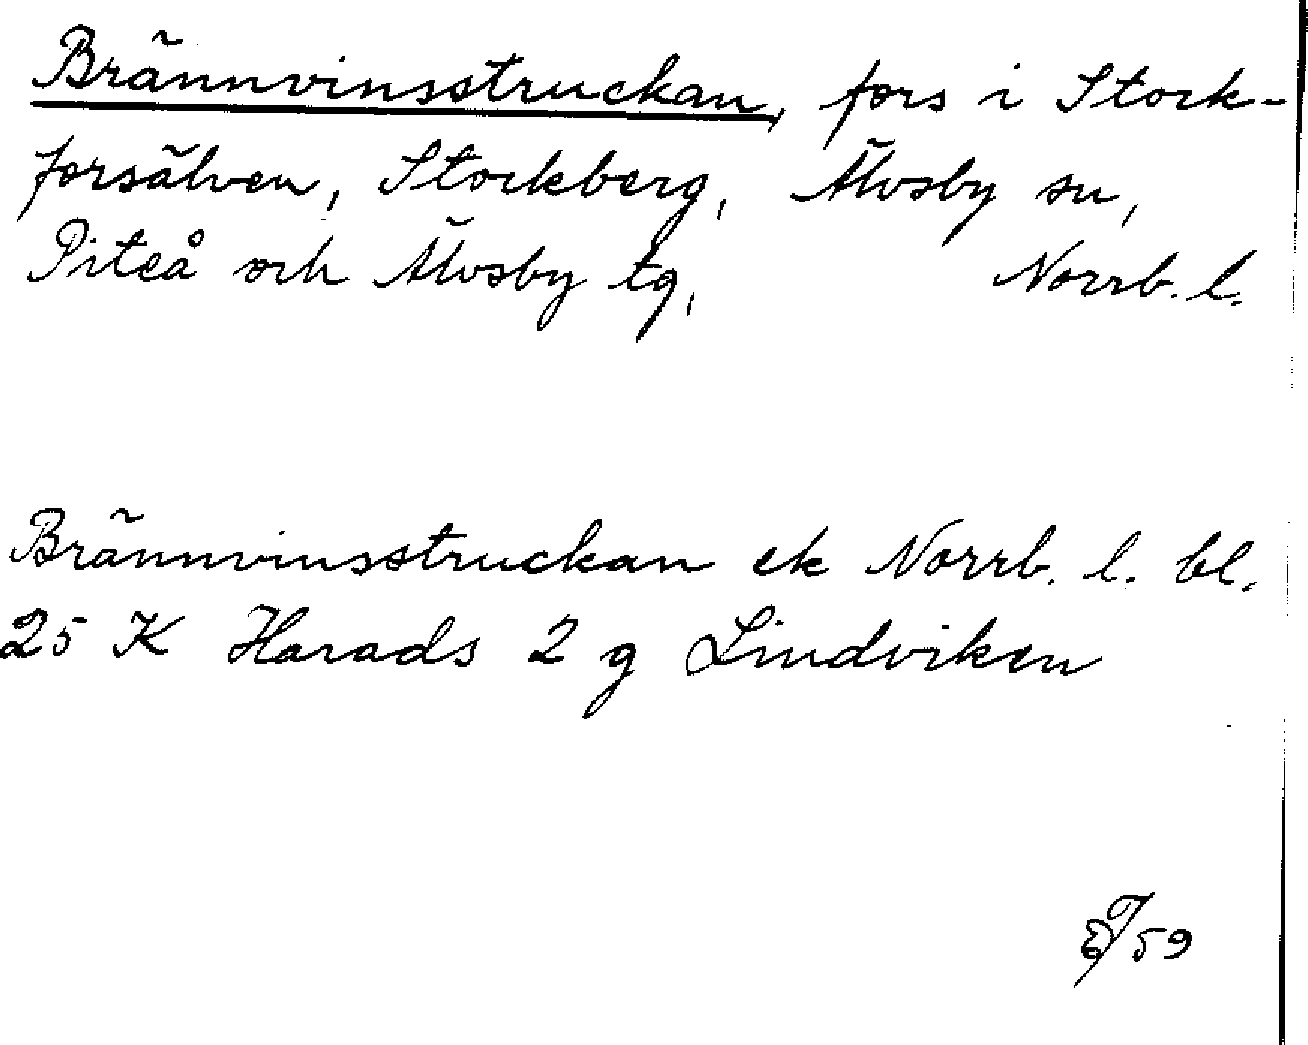 Brännvinsstruckan, fors i Stock-
forsälven, Stockberg, Älvsby sn,
Piteå och Älvsby tg, Norrb. l.
Brännvinsstruckan ek Norrb. l. bl.
25 K Harads 2 g Lindviken
59